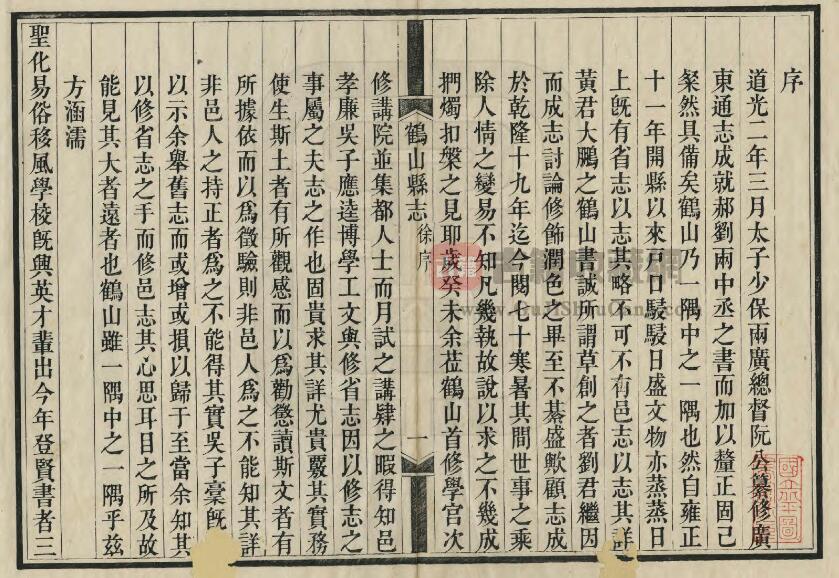 序
道光二年三月太子少保兩廣總督阮公纂修廣
東通志成就郝劉兩中丞之書而加以釐正固已
粲然具備矣鶴山乃一隅中之一隅也然自雍正
十一年開縣以來戸口駸駸日盛文物亦蒸蒸日
上旣有省志以志其略不可不有邑志以志其詳
黃君大鵬之鶴山書誠所謂草創之者劉君繼因
而成志討論修飾潤色之畢至不綦盛歟顧志成
於乾隆十九年迄今閱七十寒暑其間世事之乘
除人情之變易不知凡幾執故說以求之不幾成
捫燭扣槃之見耶歲癸未余莅鶴山首修學官次
鶴山縣志 徐序 一
修講院並集都人士而月試之講肄之暇得知邑
孝廉吳子應逵博學工文與修省志因以修志之
事屬之夫志之作也固貴求其詳尤貴覈其實務
使生斯土者有所觀感而以爲勸懲讀斯文者有
所據依而以爲徵驗則非邑人爲之不能知其詳
非邑人之持正者爲之不能得其實吳子稾旣
以示余舉舊志而或增或損以歸于至當余知其
以修省志之手而修邑志其心思耳目之所及故
能見其大者遠者也鶴山雖一隅中之一隅乎茲
方涵濡
聖化易俗移風學校旣興英才輩出今年登賢書者三